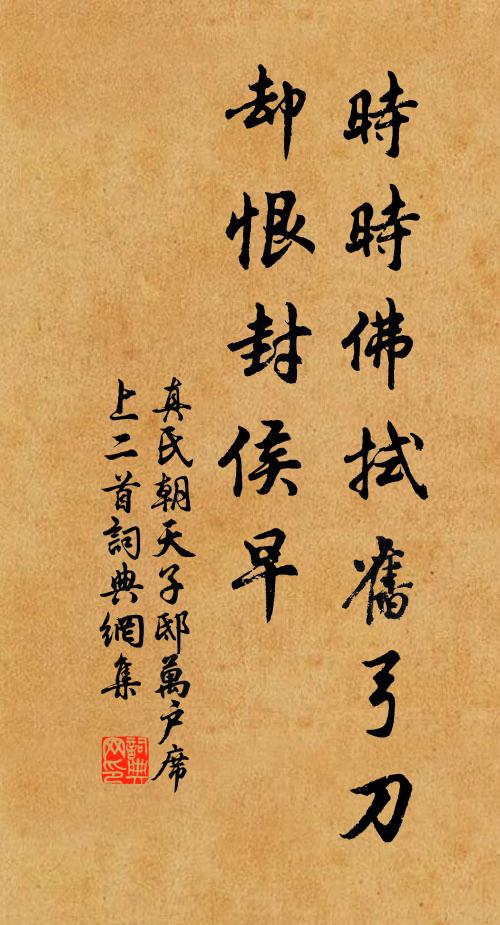 時時佛拭舊弓刀
却恨封侯早
真氏朝天子邸萬户席
上二首詞典網集
詞典
网印